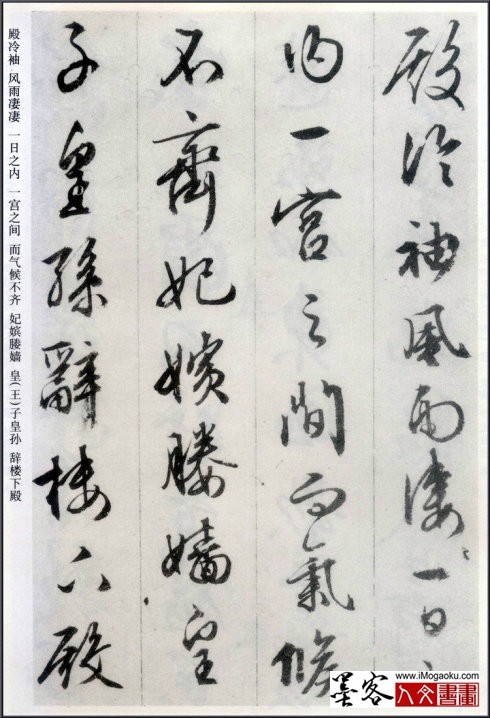 殿冷袖風雨凄〻一日之
内一宮之間而氣候
不齊妃嬪媵嬙皇
子皇孫辭樓下殿
殿冷袖 风雨凄凄 一日之内 一宫之间 而气候不齐 妃嫔媵嫱 皇(王)子皇孙 辞楼下殿
墨客 www.iMogaoku.com
人文書畫